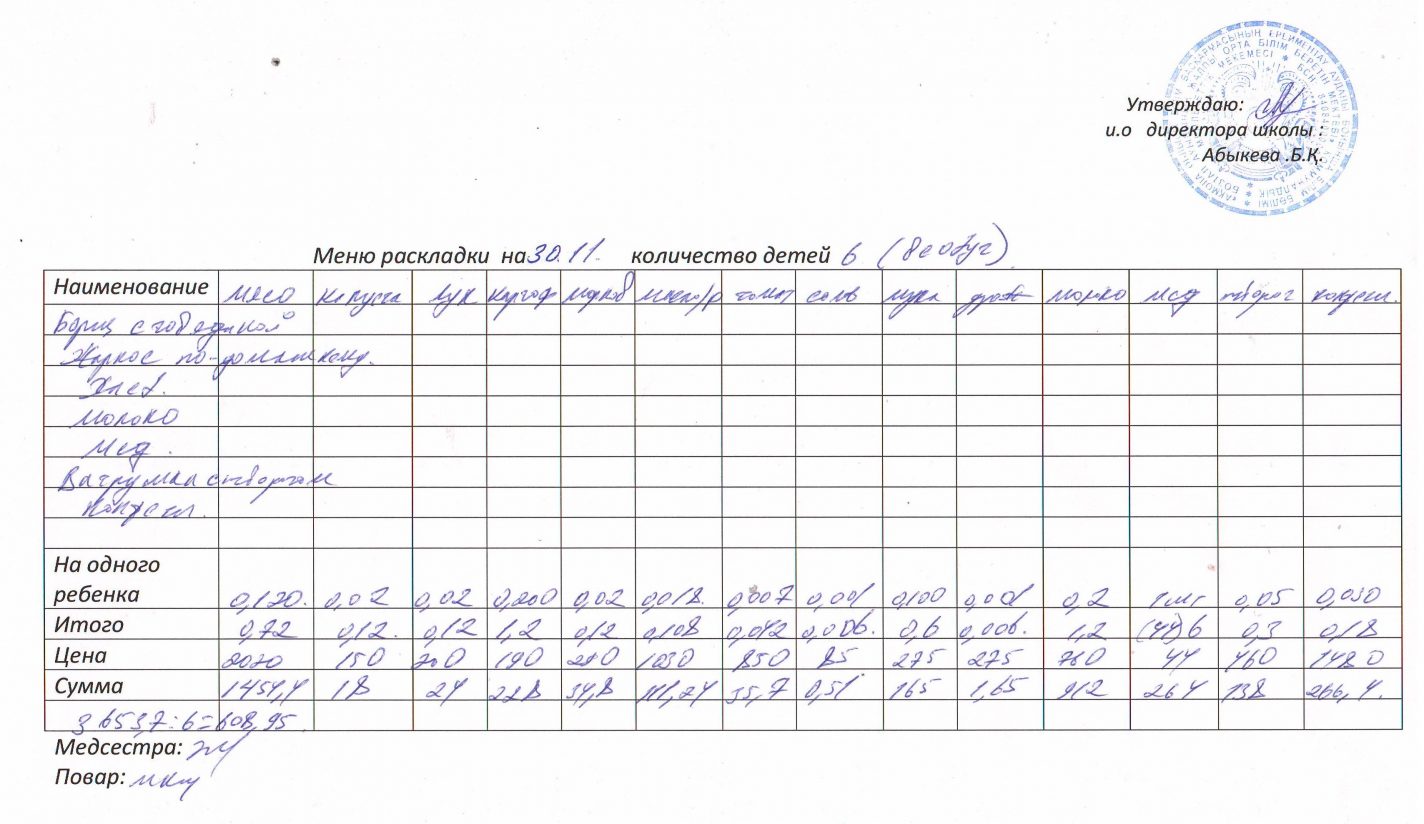 Утверждаю:
и.о директора школы :
Абыкева .Б.Қ.
Меню раскладки на 30.11. количество детей 6
Наименование мясо капуста лук картоф морков масло/р томат соль мука дрож молоко мёд творог кондсил.
Борщ с говядиной
Жаркое по-домашнему.
Хлеб.
Молоко
Мёд.
Ватрушка с творогом
На одного
ребенка 0,120. 0,02 0,02 0,200 0,02 0,018. 0,007 0,001 0,100 0,001 0,2 1шт 0,05 0,030
Итого 0,72 0,12. 0,12 1,2 0,12 0,108 0,042 0,006. 0,6 0,006. 1,2 (44)6 0,3 0,18
Цена 2020 150 200 190 290 1030 850 85 275 275 760 44 460 1480
Сумма 1454,4 18 24 228 34,8 111,24 35,7 0,51 165 1,65 912 264 138 266,4.
3653,7:6=608,95
Медсестра:
Повар: